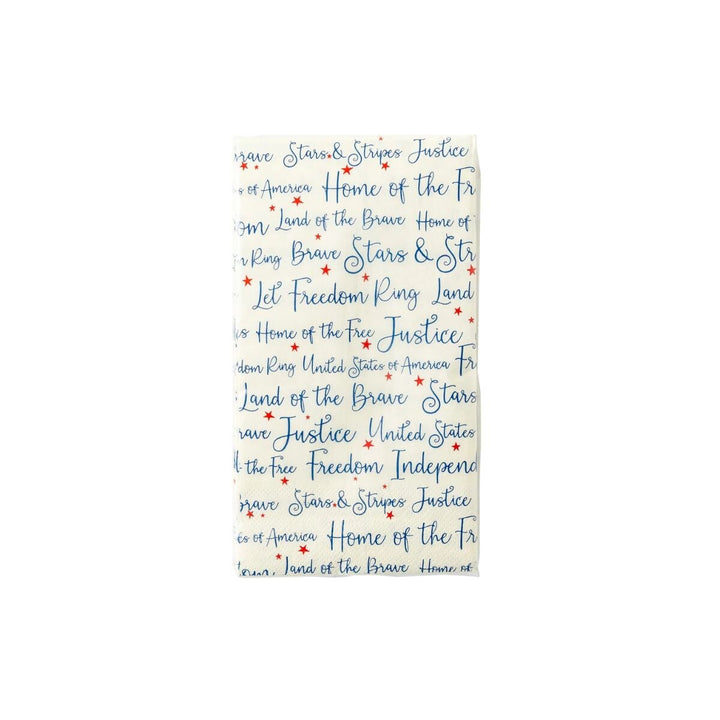 brave Stars & Stripes Justice
s of America Home of the Fr
om Land of the Brave Home of
m Ring Brave Stars & Str
Let Freedom Ring Land
es Home of the Free Justice
dom Ring United States of America Fr
Land of the Brave Stars
rave Justice United States
the Free Freedom Independ
Brave Stars & Stripes Justice
es of America Home of the Fr
om Land of the Brave Home of